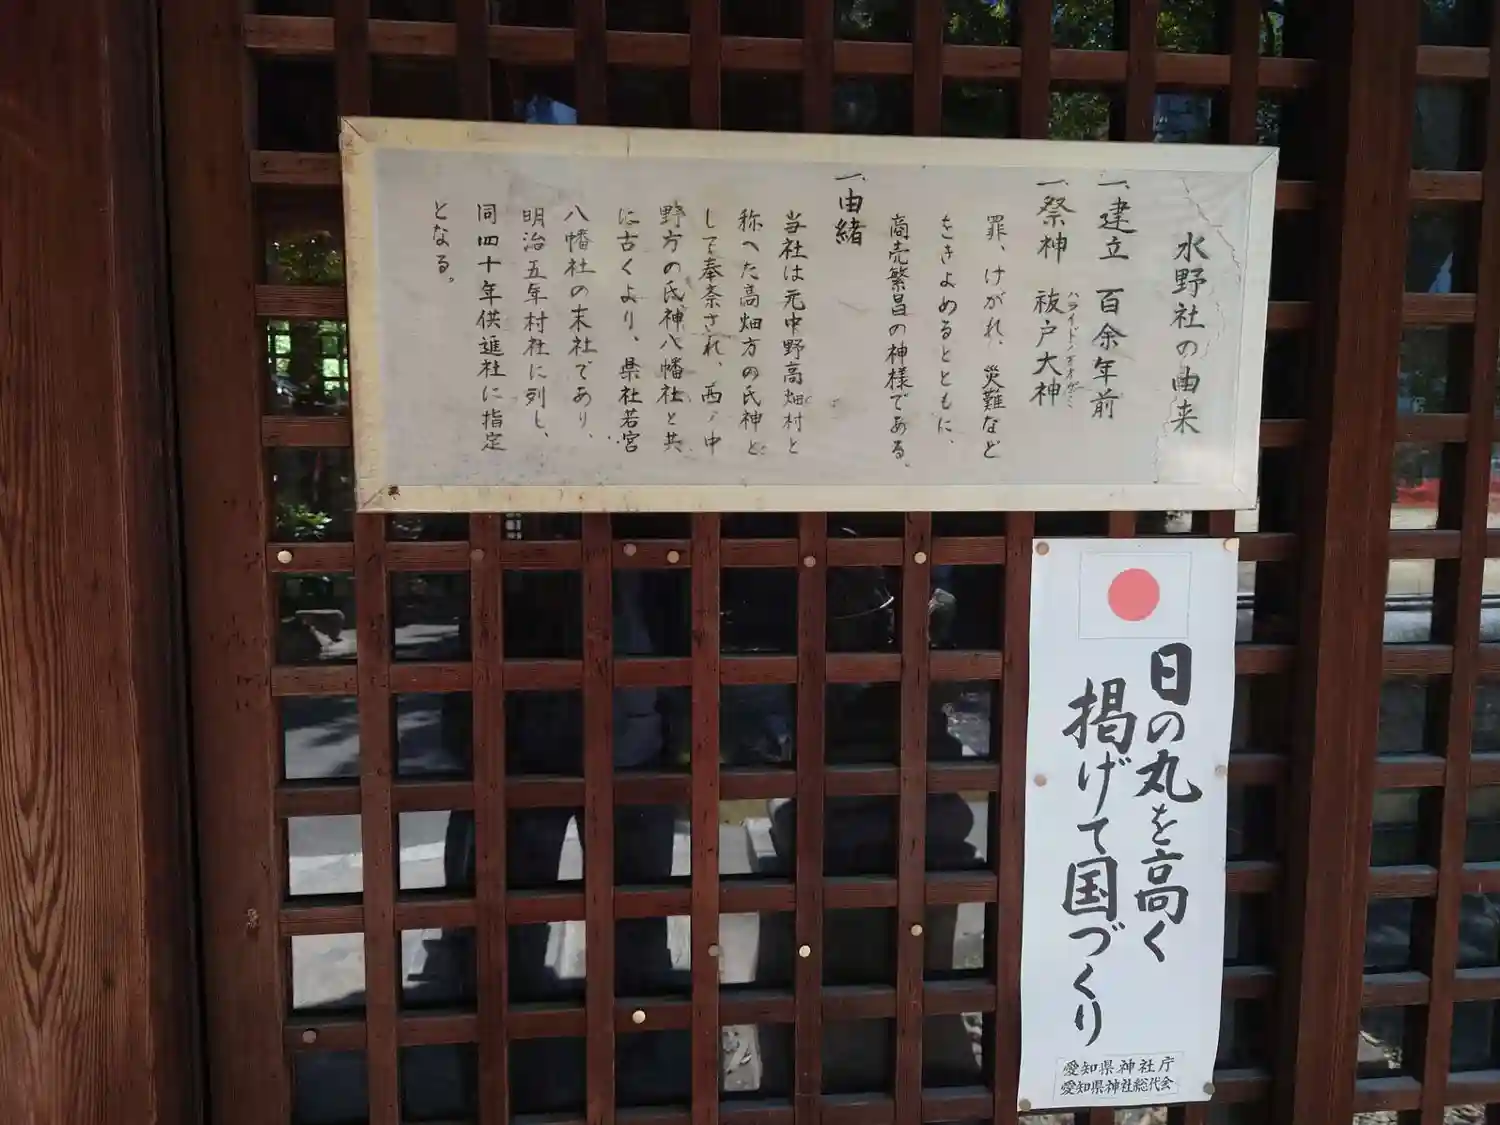 水野社の由来
一、建立 百余年前
一、祭神 祓戸大神
ハライドノオオガミ
罪、けがれ、災難など
をきよめるとともに、
商売繁昌の神様である。
一、由緒
当社は元中野高畑村と
称へた高畑方の氏神と
して奉斎され、西ノ中
野方の氏神八幡社と共
に古くより、県社若宮
八幡社の末社であり、
明治五年村社に列し、
同四十年供進社に指定
となる。
日の丸を高く
掲げて国づくり
愛知県神社庁
愛知県神社総代会